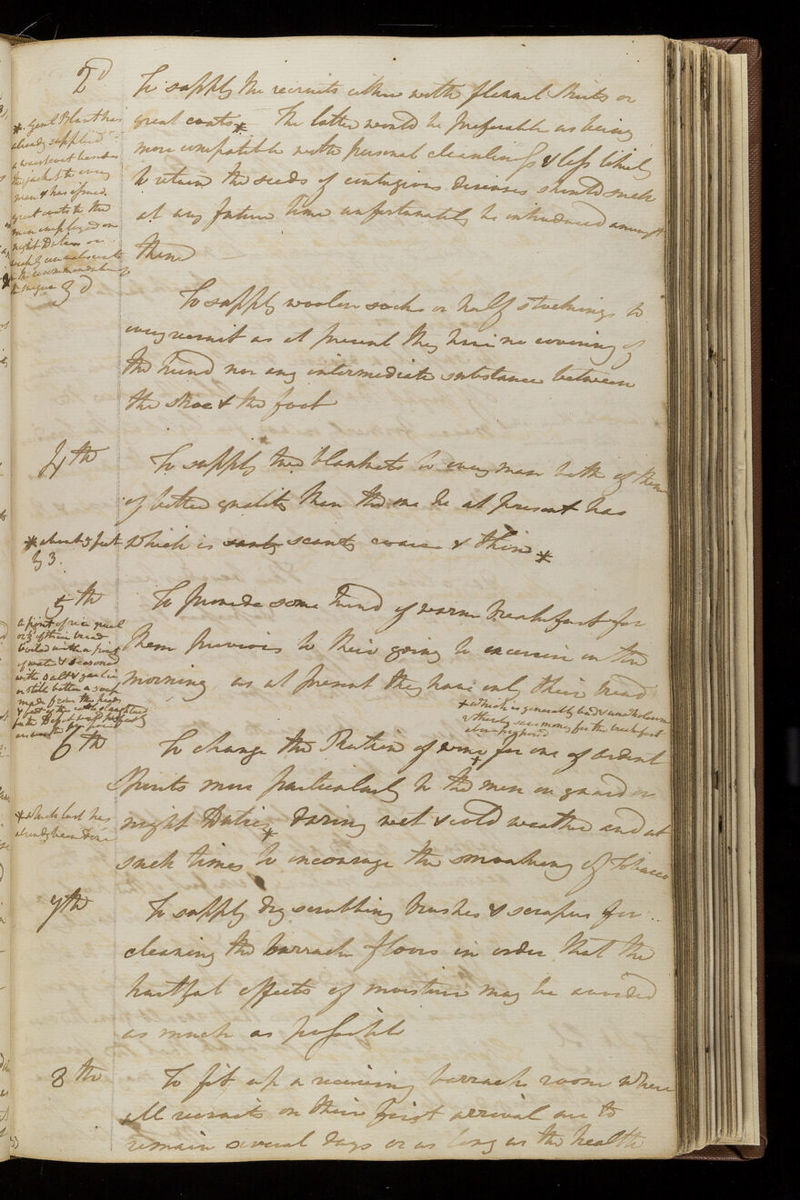 2d
To supply the recruits either with flannel shirts or
great coats* The latter would be preferable as being
more compatible with personal cleanliness & less likely
to retain the seeds of contagious diseases should such
at any future time unfortunately be introduced amongst
them
* Genl has
already supplied
a waistcoat
the jacket to every
man & has issued
great coats to the
men employed on
night Duties
3d
To supply woolen socks or half stockings to
every recruit as at present they have no covering of
the kind nor any intermediate substance between
the shoe & the foot
4th
To supply two blankets to every man both of them
of better quality than the one he at present has
which is scanty coarse & thin*
* about 5 feet
by 3.
5th
To provide some kind of warm breakfast for
them previous to their going to exercise in the
morning as at present they have only their bread
a pint of rice gruel
or of their bread
boiled with a pint
of water & seasoned
with salt & garlic
or still better a soup
made from the
& feet of the cattle slaughtered
+ which is generally bad & unwholesome
& thereby save money for the breakfast
above proposed
6th
To change the Ration of wine+ for one of ardent
Spirits more particularly to the men on guard or
night Duties* during wet & cold weather and at
such times to encourage the smoaking of Tobacco
* which last has
already been done
7th
To supply dry scrubbing brushes & scrapers for
cleaning the barrack floors in order that the
hurtful effects of moisture may be avoided
as much as possible
8th
To fit up a receiving barrack room where
all recruits on their first arrival are to
remain several days or as long as the health